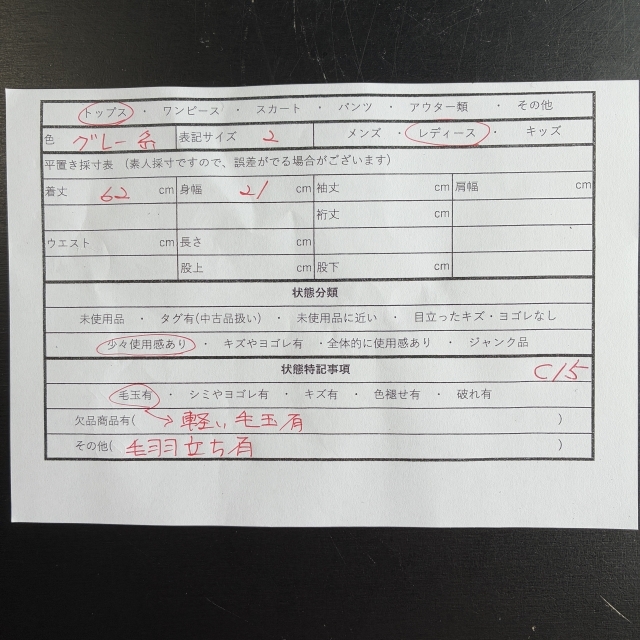 トップス ・ ワンピース ・ スカート ・ パンツ ・ アウター類 ・ その他
色 グレー系 表記サイズ 2 メンズ ・ レディース ・ キッズ
平置き採寸表 (素人採寸ですので、誤差がでる場合がございます)
着丈 62 cm 身幅 21 cm 袖丈 cm 肩幅 cm
裄丈 cm
ウエスト cm 長さ cm
股上 cm 股下 cm
状態分類
未使用品 ・ タグ有(中古品扱い) ・ 未使用品に近い ・ 目立ったキズ・ヨゴレなし
少々使用感あり ・ キズやヨゴレ有 ・全体的に使用感あり ・ ジャンク品
状態特記事項 C15
毛玉有 ・ シミやヨゴレ有 ・ キズ有 ・ 色褪せ有 ・ 破れ有
欠品商品有( → 軽い毛玉有 )
その他( 毛羽立ち有 )